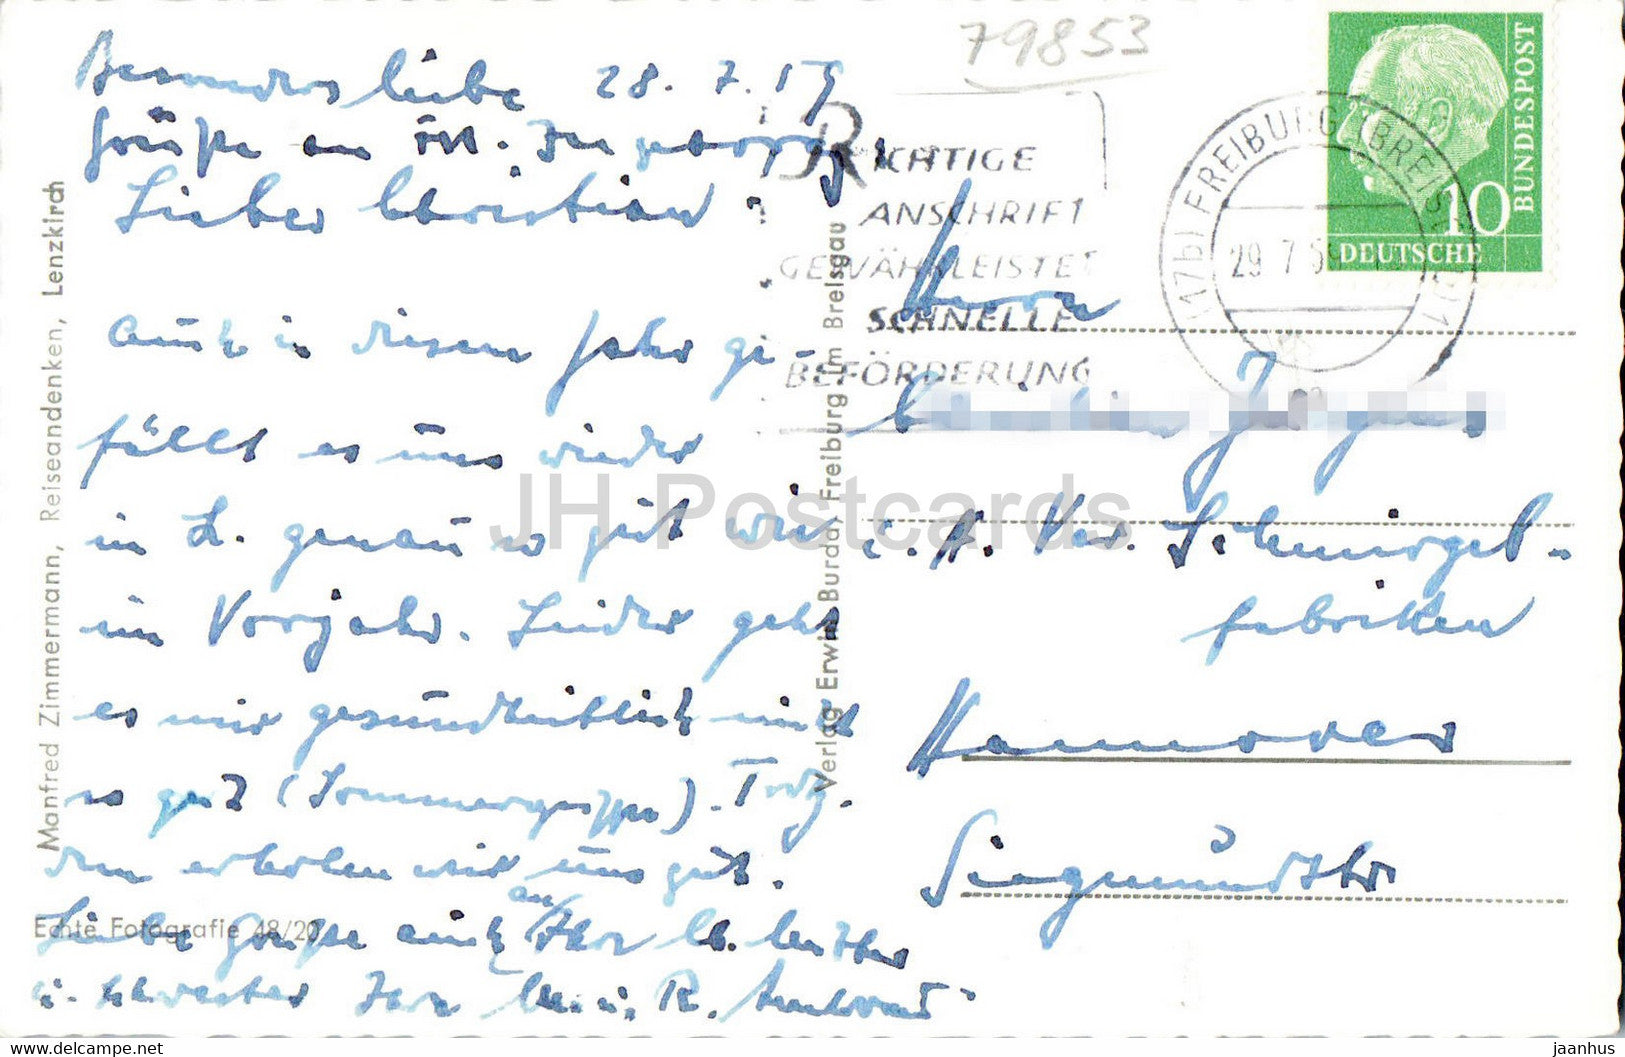 79853
Besonders liebe 28. 7. 59
Grüße an Frl. Ingeborg
Lieber Christian!
Auch in diesem Jahr ge-
fällt es uns wieder
in L. genau so gut wie
im Vorjahr. Leider geht
es mir gesundheitlich nicht
so gut (Sommergrippe). Trotz-
dem erholen wir uns gut.
Liebe Grüße auch an Ihre lb. Mutter
u. Schwester Ihre u. R.
RICHTIGE
ANSCHRIFT
GEWÄHRLEISTET
SCHNELLE
BEFÖRDERUNG
(17b) FREIBURG (BREISGAU) 1
29.7.59
10
DEUTSCHE
BUNDESPOST
Herrn
i. A. Ver. Schmirgel-
fabriken
Hannover
Siegmundstr.
Manfred Zimmermann, Reiseandenken, Lenzkirch
Echte Fotografie 48/20
Verlag Erwin Burda, Freiburg im Breisgau
JH Postcards
delcampe.net
jaanhus